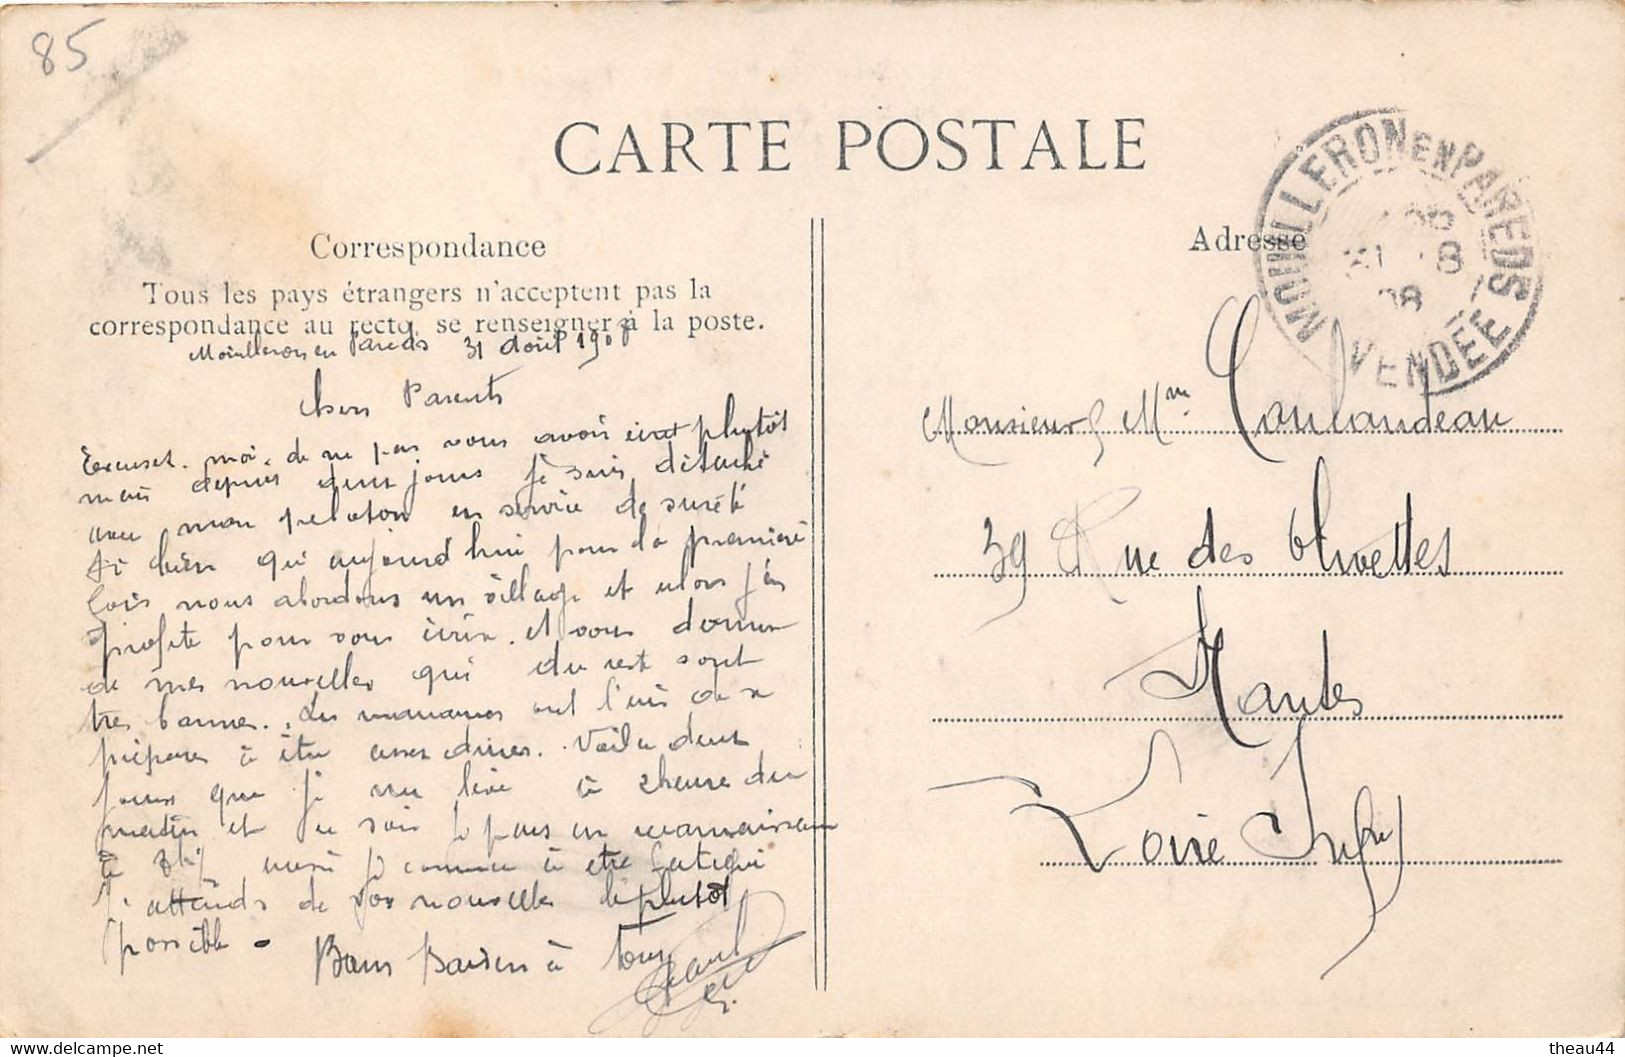 85
CARTE POSTALE
MOUILLERON EN PAREDS
31 8
08
VENDÉE
Correspondance
Adresse
Tous les pays étrangers n'acceptent pas la
correspondance au recto, se renseigner à la poste.
Mouilleron en Pareds 31 Aout 1908
Chers Parents
Excusez-moi de ne pas vous avoir écrit plutôt
mais depuis deux jours je suis détaché
avec mon peloton en service de sureté
si bien qu'aujourd'hui pour la première
fois nous abordons un village et alors j'en
profite pour vous écrire et vous donner
de mes nouvelles qui du reste sont
très bonnes. Les manœuvres ont l'air de se
préparer à être assez dures. Voila deux
jours que je me lève à 2 heure du
matin et je pars en reconnaissance
à aussi je commence à être fatigué
J'attends de vos nouvelles le plutôt
possible -
Bons Baisers à tous
Monsieur & Mme
39 Rue des Olivettes
Nantes
Loire Infre
theau44
www.delcampe.net